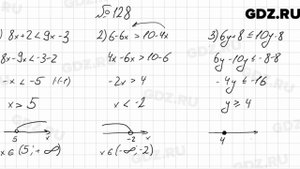 GDZ.RU
№ 128
) 8x+2<9x-3
8x-9x<-3-2
-x<-5 |(-1)
x>5
5 x
x∈(5;+∞)
2) 6-6x>10-4x
4x-6x>10-6
-2x>4
x<-2
-2 x
x∈(-∞;-2)
3) 6y+8≤10y-8
6y-10y≤-8-8
-4y≤-16
y≥4
4
GDZ.RU